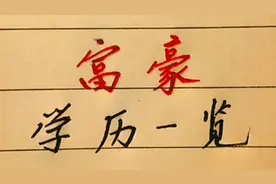 富豪
学历一览